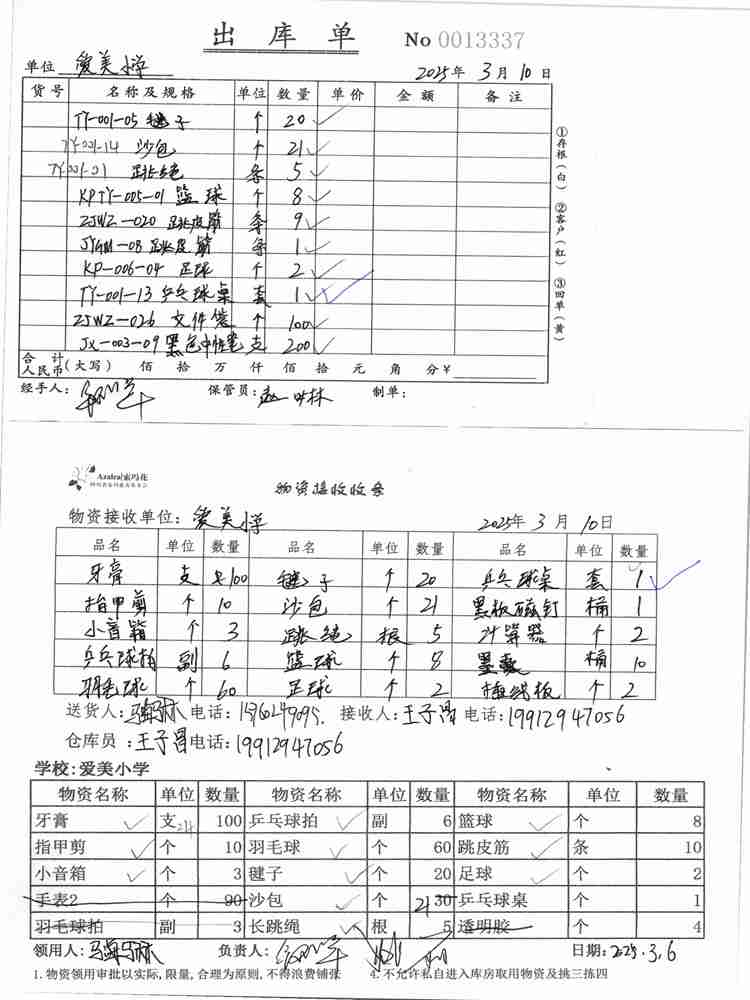 出库单 No 0013337
单位 爱美小学 2025年 3月 10日
货号 名称及规格 单位 数量 单价 金额 备注
TY-001-05 毽子 个 20
TY-001-14 沙包 个 21
TY-001-01 跳绳 条 5
KPTY-005-01 篮球 个 8
ZJWZ-020 跳皮筋 条 9
JYGM-08 跳皮筋 条 1
KP-006-04 足球 个 2
TY-001-13 乒乓球桌 套 1
ZJWZ-026 文件袋 个 100
JX-003-09 黑色中性笔 支 200
合计人民币(大写) 佰 拾 万 仟 佰 拾 元 角 分¥
经手人: 保管员: 制单:
①存根(白) ②客户(红) ③回单(黄)
Azalea|索玛花
物资接收收条
物资接收单位: 爱美小学 2025年 3月 10日
品名 单位 数量 品名 单位 数量 品名 单位 数量
牙膏 支 100 毽子 个 20 乒乓球桌 套 1
指甲剪 个 10 沙包 个 21 黑板磁钉 桶 1
小音箱 个 3 跳绳 根 5 计算器 个 2
乒乓球拍 副 6 篮球 个 8 桶 10
羽毛球 个 60 足球 个 2 插线板 个 2
送货人: 电话: 接收人: 王子昌 电话: 19912947056
仓库员: 王子昌 电话: 19912947056
学校:爱美小学
物资名称 单位 数量 物资名称 单位 数量 物资名称 单位 数量
牙膏 支 100 乒乓球拍 副 6 篮球 个 8
指甲剪 个 10 羽毛球 个 60 跳皮筋 条 10
小音箱 个 3 毽子 个 20 足球 个 2
手表2 个 90 沙包 个 21 30 乒乓球桌 个 1
羽毛球拍 副 3 长跳绳 根 5 透明胶 个 4
领用人: 负责人: 日期: 2025.3.6
1.物资领用审批以实际,限量,合理为原则,不得浪费铺张 4.不允许私自进入库房取用物资及挑三拣四